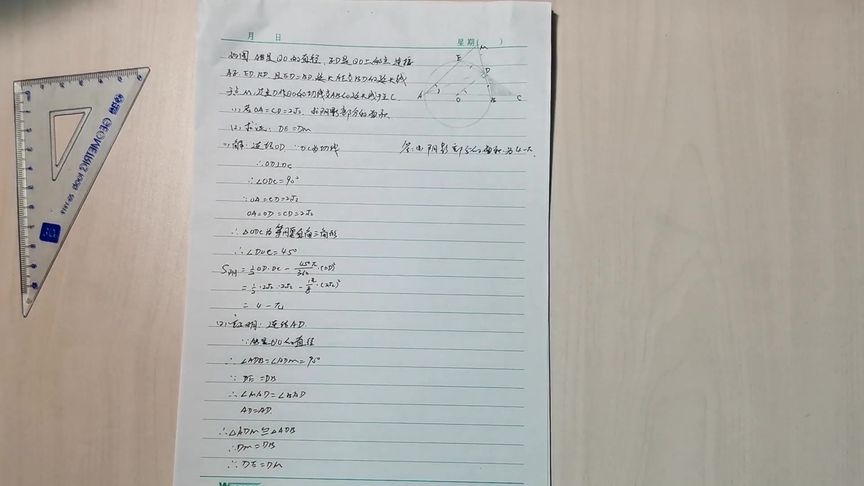 月 日 星期( )
如图 AB是⊙O的直径, E,D是⊙O上的点 连接
AE. ED. BD 且ED=BD. 延长AE交BD的延长线
于点M, 过点D作⊙O的切线交AB的延长线于点C.
(1) 若OA=CD=2√2. 求阴影部分的面积
(2) 求证: DE=DM
M
E
D
A O B C
(1) 解: 连结OD ∵DC为切线
答: 阴影部分的面积为4-π.
∴OD⊥DC
∴∠ODC=90°
∵OA=CD=2√2
OA=OD=CD=2√2
∴△ODC为等腰直角三角形
∴∠DOC=45°
S阴=½OD·DC - 45°π/360·(OD)²
=½·2√2·2√2 - π/8·(2√2)²
=4-π
(2) 证明: 连结AD
∵AB是⊙O的直径
∴∠ADB=∠ADM=90°
∵DE=DB
∴∠MAD=∠BAD
AD=AD
∴△ADM≌△ADB
∴DM=DB
∴DE=DM